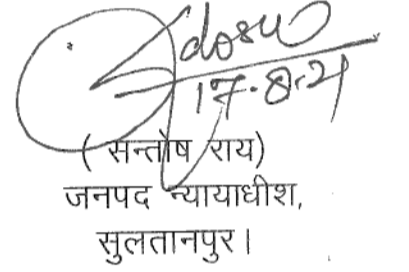 17.8.21
( सन्तोष राय)
जनपद न्यायाधीश,
सुलतानपुर।